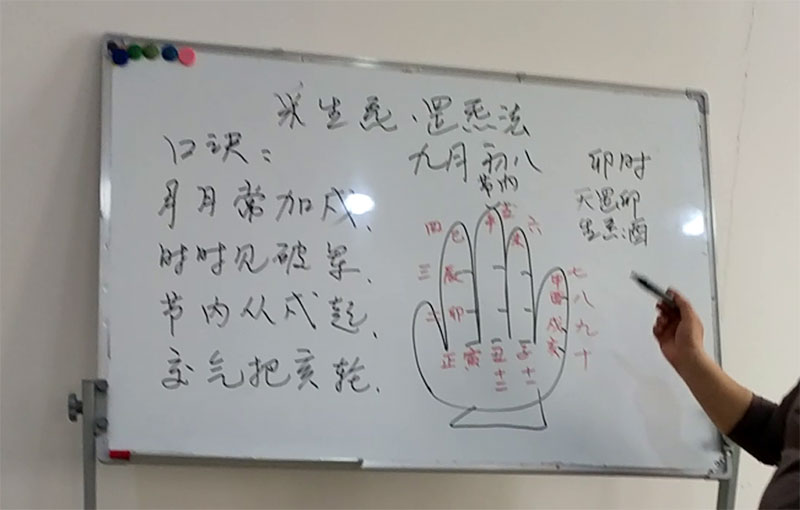 采生炁、罡炁法
口诀：
月月常加戌、
时时见破军、
节内从戌起、
交气把亥轮、
九月初八
节内
卯时
天罡卯
生炁酉
四 巳 午 五 未 六
三 辰 申 七
二 卯 酉 八
戌 九
正 寅 丑 子 亥 十
十二 十一